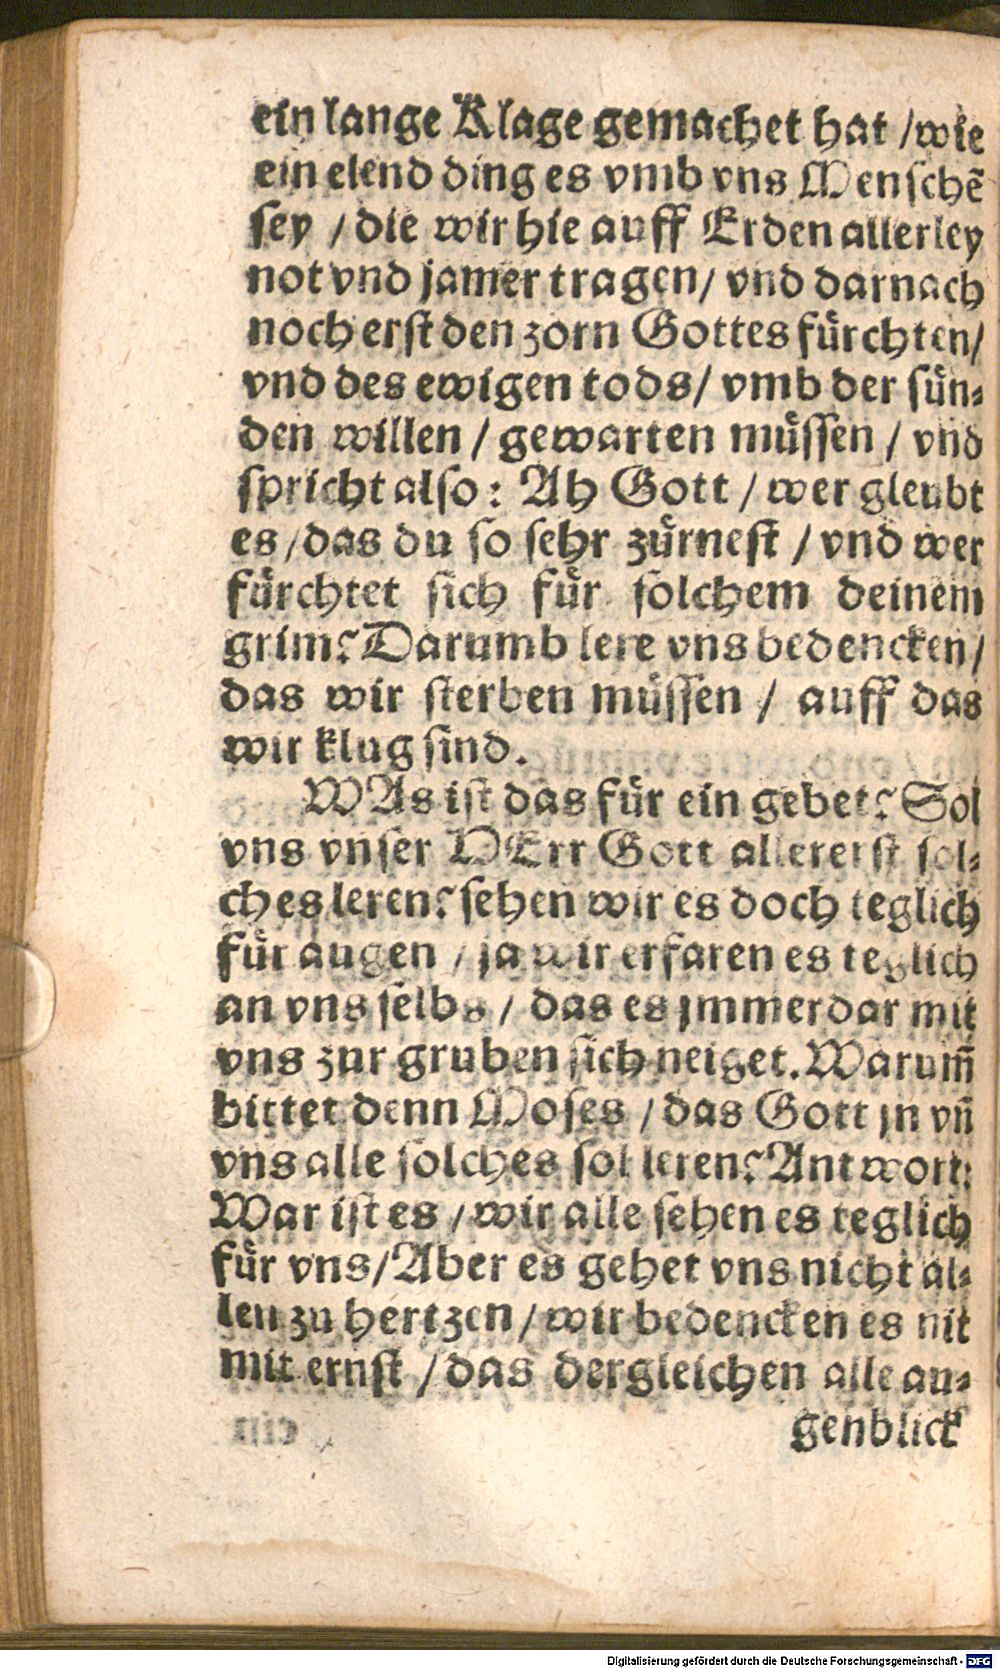 ein lange Klage gemachet hat /wie
ein elend ding es vmb vns Menschē
sey /die wir hie auff Erden allerley
not vnd jamer tragen/ vnd darnach
noch erst den zorn Gottes fürchten/
vnd des ewigen tods/ vmb der sün-
den willen / gewarten müssen / vnd
spricht also: Ah Gott / wer gleubt
es /das du so sehr zürnest / vnd wer
fürchtet sich für solchem deinem
grim? Darumb lere vns bedencken/
das wir sterben müssen / auff das
wir klug sind.
WAs ist das für ein gebet? Sol
vns vnser HErr Gott allererst sol-
ches leren? sehen wir es doch teglich
für augen / ja wir erfaren es teglich
an vns selbs / das es jmmerdar mit
vns zur gruben sich neiget. Warum̄
bittet denn Moses /das Gott jn vn̄
vns alle solches sol leren? Antwort:
War ist es /wir alle sehen es teglich
für vns/Aber es gehet vns nicht al-
len zu hertzen /wir bedencken es nit
mit ernst /das dergleichen alle au-
genblick
Digitalisierung gefördert durch die Deutsche Forschungsgemeinschaft - DFG